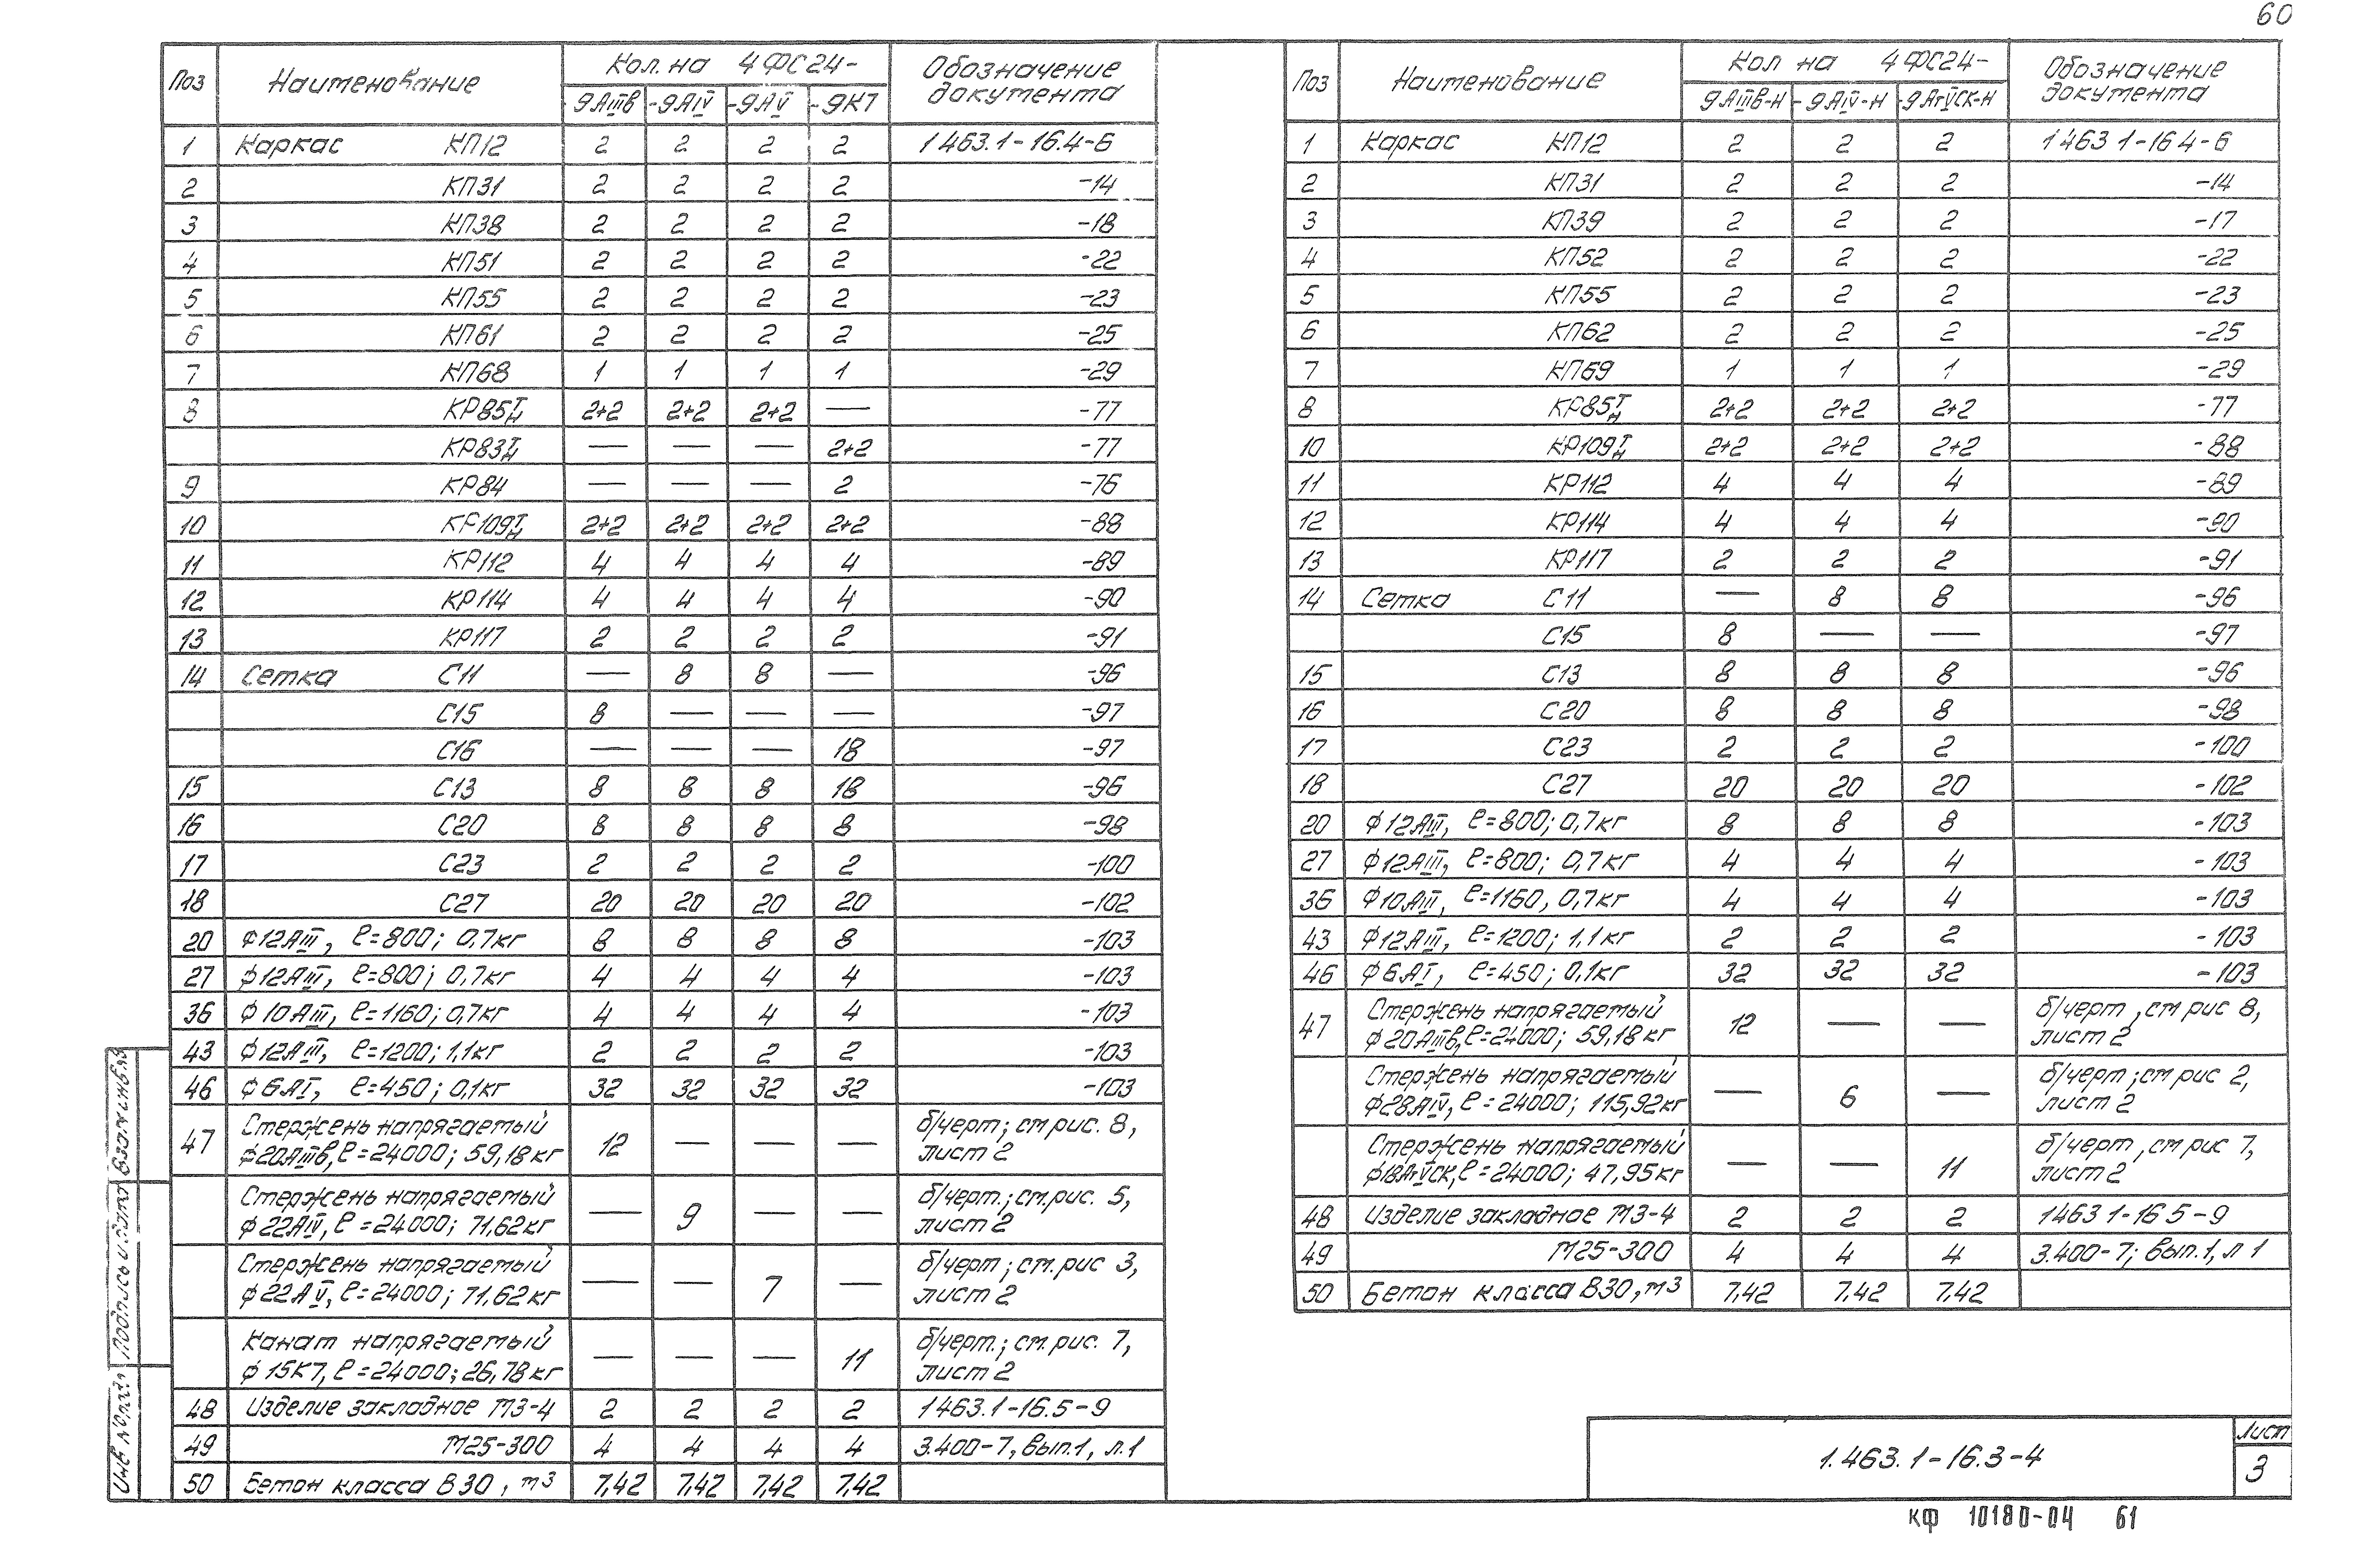 60
Поз Наименование Кол. на 4ФС24- Обозначение документа
-9АIIIв -9АIV -9АV -9К7
1 Каркас КП12 2 2 2 2 1463.1-16.4-6
2 КП31 2 2 2 2 -14
3 КП38 2 2 2 2 -18
4 КП51 2 2 2 2 -22
5 КП55 2 2 2 2 -23
6 КП61 2 2 2 2 -25
7 КП68 1 1 1 1 -29
8 КР85Т/Н 2+2 2+2 2+2 — -77
КР83Т/Н — — — 2+2 -77
9 КР84 — — — 2 -76
10 КР109Т/Н 2+2 2+2 2+2 2+2 -88
11 КР112 4 4 4 4 -89
12 КР114 4 4 4 4 -90
13 КР117 2 2 2 2 -91
14 Сетка С11 — 8 8 — -96
С15 8 — — — -97
С16 — — — 18 -97
15 С13 8 8 8 18 -96
16 С20 8 8 8 8 -98
17 С23 2 2 2 2 -100
18 С27 20 20 20 20 -102
20 ф12АIII, ℓ=800; 0,7кг 8 8 8 8 -103
27 ф12АIII, ℓ=800; 0,7кг 4 4 4 4 -103
36 ф10АIII, ℓ=1160; 0,7кг 4 4 4 4 -103
43 ф12АIII, ℓ=1200; 1,1кг 2 2 2 2 -103
46 ф6АI, ℓ=450; 0,1кг 32 32 32 32 -103
47 Стержень напрягаемый ф20АIIIв, ℓ=24000; 59,18кг 12 — — — б/черт; см рис. 8, лист 2
Стержень напрягаемый ф22АIV, ℓ=24000; 71,62кг — 9 — — б/черт.; см.рис. 5, лист 2
Стержень напрягаемый ф22АV, ℓ=24000; 71,62кг — — 7 — б/черт; см. рис 3, лист 2
Канат напрягаемый ф15К7, ℓ=24000; 26,78кг — — — 11 б/черт.; см. рис. 7, лист 2
48 Изделие закладное М3-4 2 2 2 2 1463.1-16.5-9
49 М25-300 4 4 4 4 3.400-7, вып.1, л.1
50 Бетон класса В30, м3 7,42 7,42 7,42 7,42
Поз Наименование Кол на 4ФС24- Обозначение документа
9АIIIв-Н -9АIV-Н -9АтVСК-Н
1 Каркас КП12 2 2 2 1463 1-16 4-6
2 КП31 2 2 2 -14
3 КП39 2 2 2 -17
4 КП52 2 2 2 -22
5 КП55 2 2 2 -23
6 КП62 2 2 2 -25
7 КП69 1 1 1 -29
8 КР85Т/Н 2+2 2+2 2+2 -77
10 КР109Т/Н 2+2 2+2 2+2 -88
11 КР112 4 4 4 -89
12 КР114 4 4 4 -90
13 КР117 2 2 2 -91
14 Сетка С11 — 8 8 -96
С15 8 — — -97
15 С13 8 8 8 -96
16 С20 8 8 8 -98
17 С23 2 2 2 -100
18 С27 20 20 20 -102
20 ф12АIII, ℓ=800; 0,7кг 8 8 8 -103
27 ф12АIII, ℓ=800; 0,7кг 4 4 4 -103
36 ф10АIII, ℓ=1160, 0,7кг 4 4 4 -103
43 ф12АIII, ℓ=1200; 1,1кг 2 2 2 -103
46 ф6АI, ℓ=450; 0,1кг 32 32 32 -103
47 Стержень напрягаемый ф20АIIIв, ℓ=24000; 59,18кг 12 — — б/черт, см рис 8, лист 2
Стержень напрягаемый ф28АIV, ℓ=24000; 115,92кг — 6 — б/черт; см рис 2, лист 2
Стержень напрягаемый ф18АтVСК, ℓ=24000; 47,95кг — — 11 б/черт, см рис 7, лист 2
48 Изделие закладное М3-4 2 2 2 1463 1-16 5-9
49 М25-300 4 4 4 3.400-7; вып.1, л 1
50 Бетон класса В30, м3 7,42 7,42 7,42
Инв № подл Подпись и дата Взам инв. №
1.463.1-16.3-4
Лист
3
КФ 10180-04 61